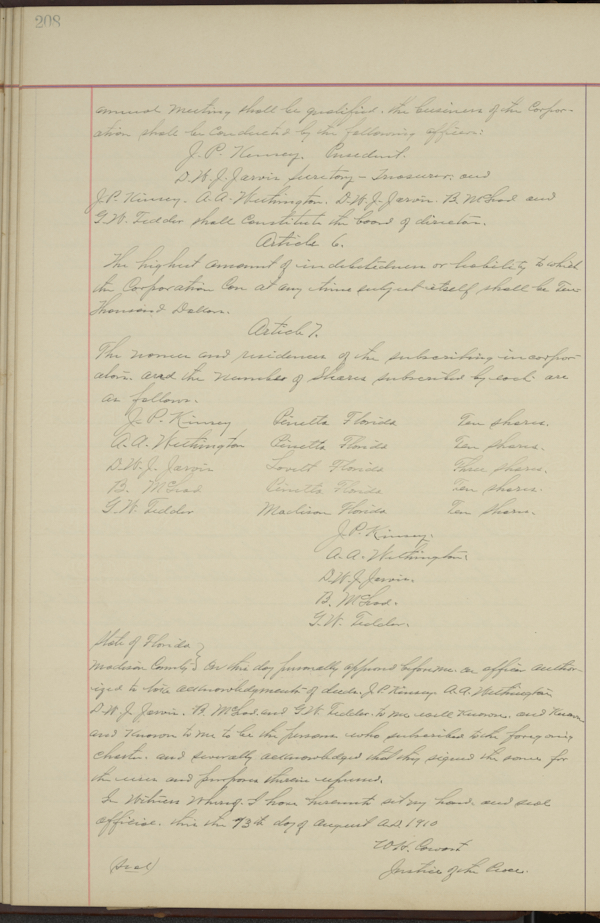 208
annual meeting shall be qualified. the business of the Corpor-
ation shall be Conducted by the following officers:
J. P. Kinsey. President.
D. W. J. Jarvis Secretary - Treasurer, and
J. P. Kinsey. A. A. Withington. D. W. J. Jarvis. B. McLeod and
G. W. Tedder shall Constitute the board of directors.
Article 6.
The highest amount of indebtedness or liability to which
the Corporation Can at any time subject itself shall be Ten
Thousand Dollars.
Article 7.
The names and residences of the subscribing incorpor-
ators. and the number of Shares subscribed by each are
as follows.
J. P. Kinsey Pinetta Florida Ten shares.
A. A. Withington Pinetta Florida Ten shares.
D. W. J. Jarvis Lovett Florida Three shares.
B. McLeod Pinetta Florida Ten shares.
G. W. Tedder Madison Florida Ten shares.
J. P. Kinsey.
A. A. Withington.
D. W. J. Jarvis.
B. McLeod.
G. W. Tedder.
State of Florida
Madison County } On this day personally appeared before me an officer author-
ized to take acknowledgments of deeds. J. P. Kinsey A. A. Withington
D. W. J. Jarvis. B. McLeod and G. W. Tedder. to me well Known. and Known
and Known to me to be the persons who subscribed to the foregoing
charter. and severally acknowledged that they signed the same for
the uses and purposes therein expressed.
In Witness Whereof. I have hereunto set my hand and seal
official. this the 13th day of August A.D. 1910
W. H. Cowart
(Seal) Justice of the Peace.